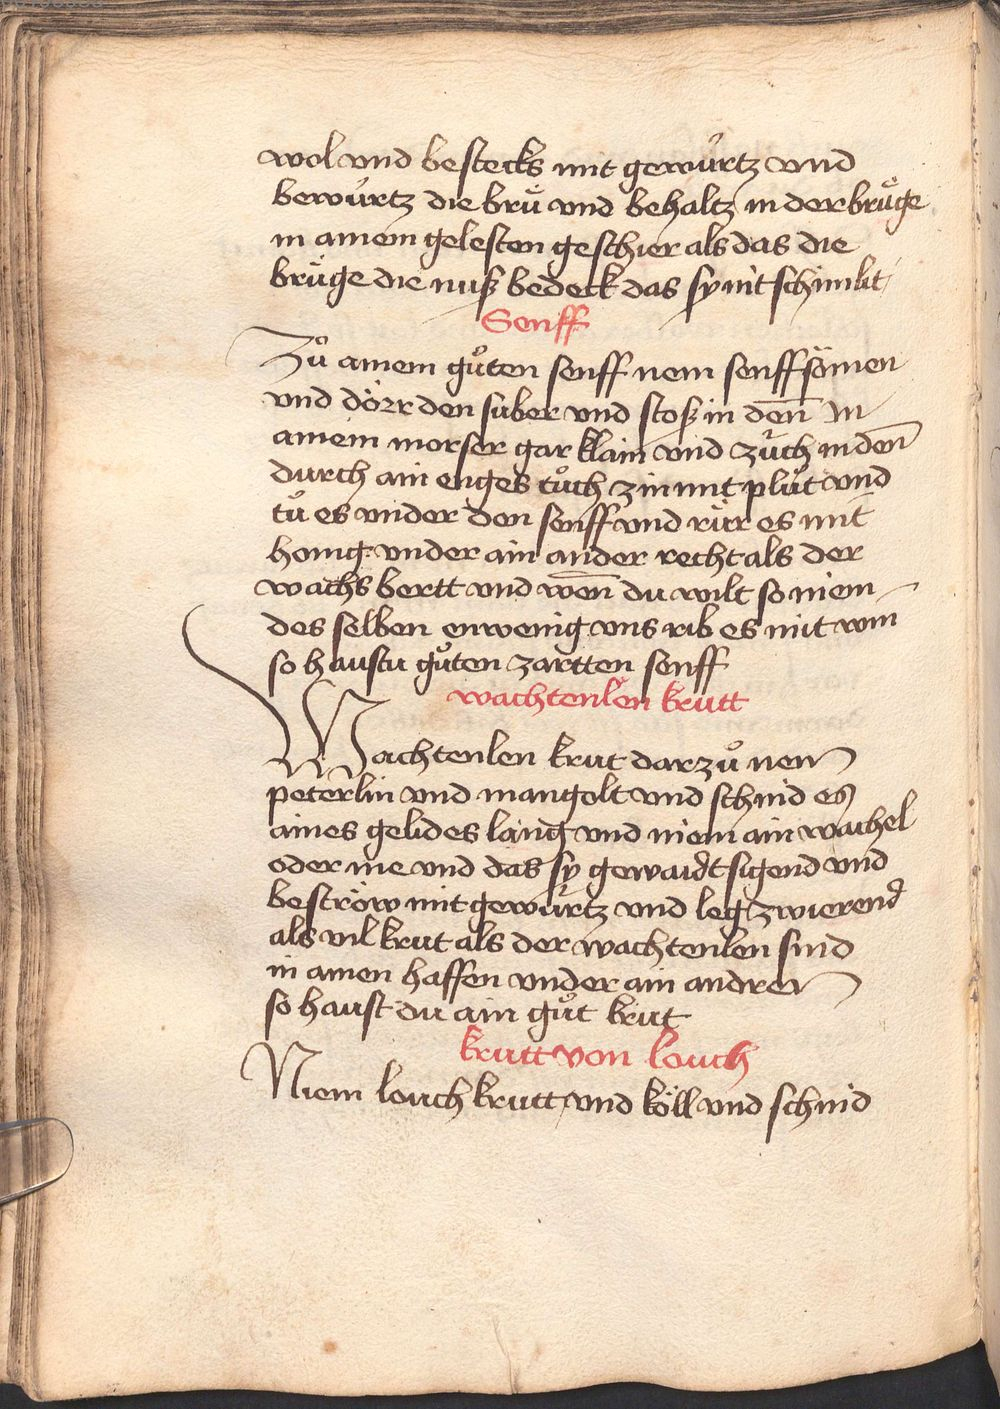 wol vnd bestecks mit gewúrtz vnd
bewúrtz die brú̈ vnd behaltz in der brúge
in ainem gelesten geschier als das die
brúge die nuß bedeck das sy nit schimlit
Senff
Zů ainem gůten senff nem senffsämen
vnd dörr den suber vnd stoß in denn̄ in
ainem morser gar klain vnd zúch in den̄
durch ain enges tůch zin mit plůt vnd
tů es vnder den senff vnd rúr es mit
honig vnder ain ander recht als der
wachs bertt vnd wen̄ du wilt so niem
des selben ein wenig vns rib es mit win
so haustu gůten zartten senff
wachtenlen krutt
Wachtenlen krut dar zů nem
peterlin vnd mangolt vnd schnid es
aines gelides lang vnd niem ain wachel
oder me vnd das sy gewaidt sigend vnd
beströw mit gewúrtz vnd leg zwierend
als vil krut als der wachtenlen sind
in ainen haffen vnder ain andren
so haust du ain gůt krut
krutt von louch
Niem louch krutt vnd köll vnd schnid